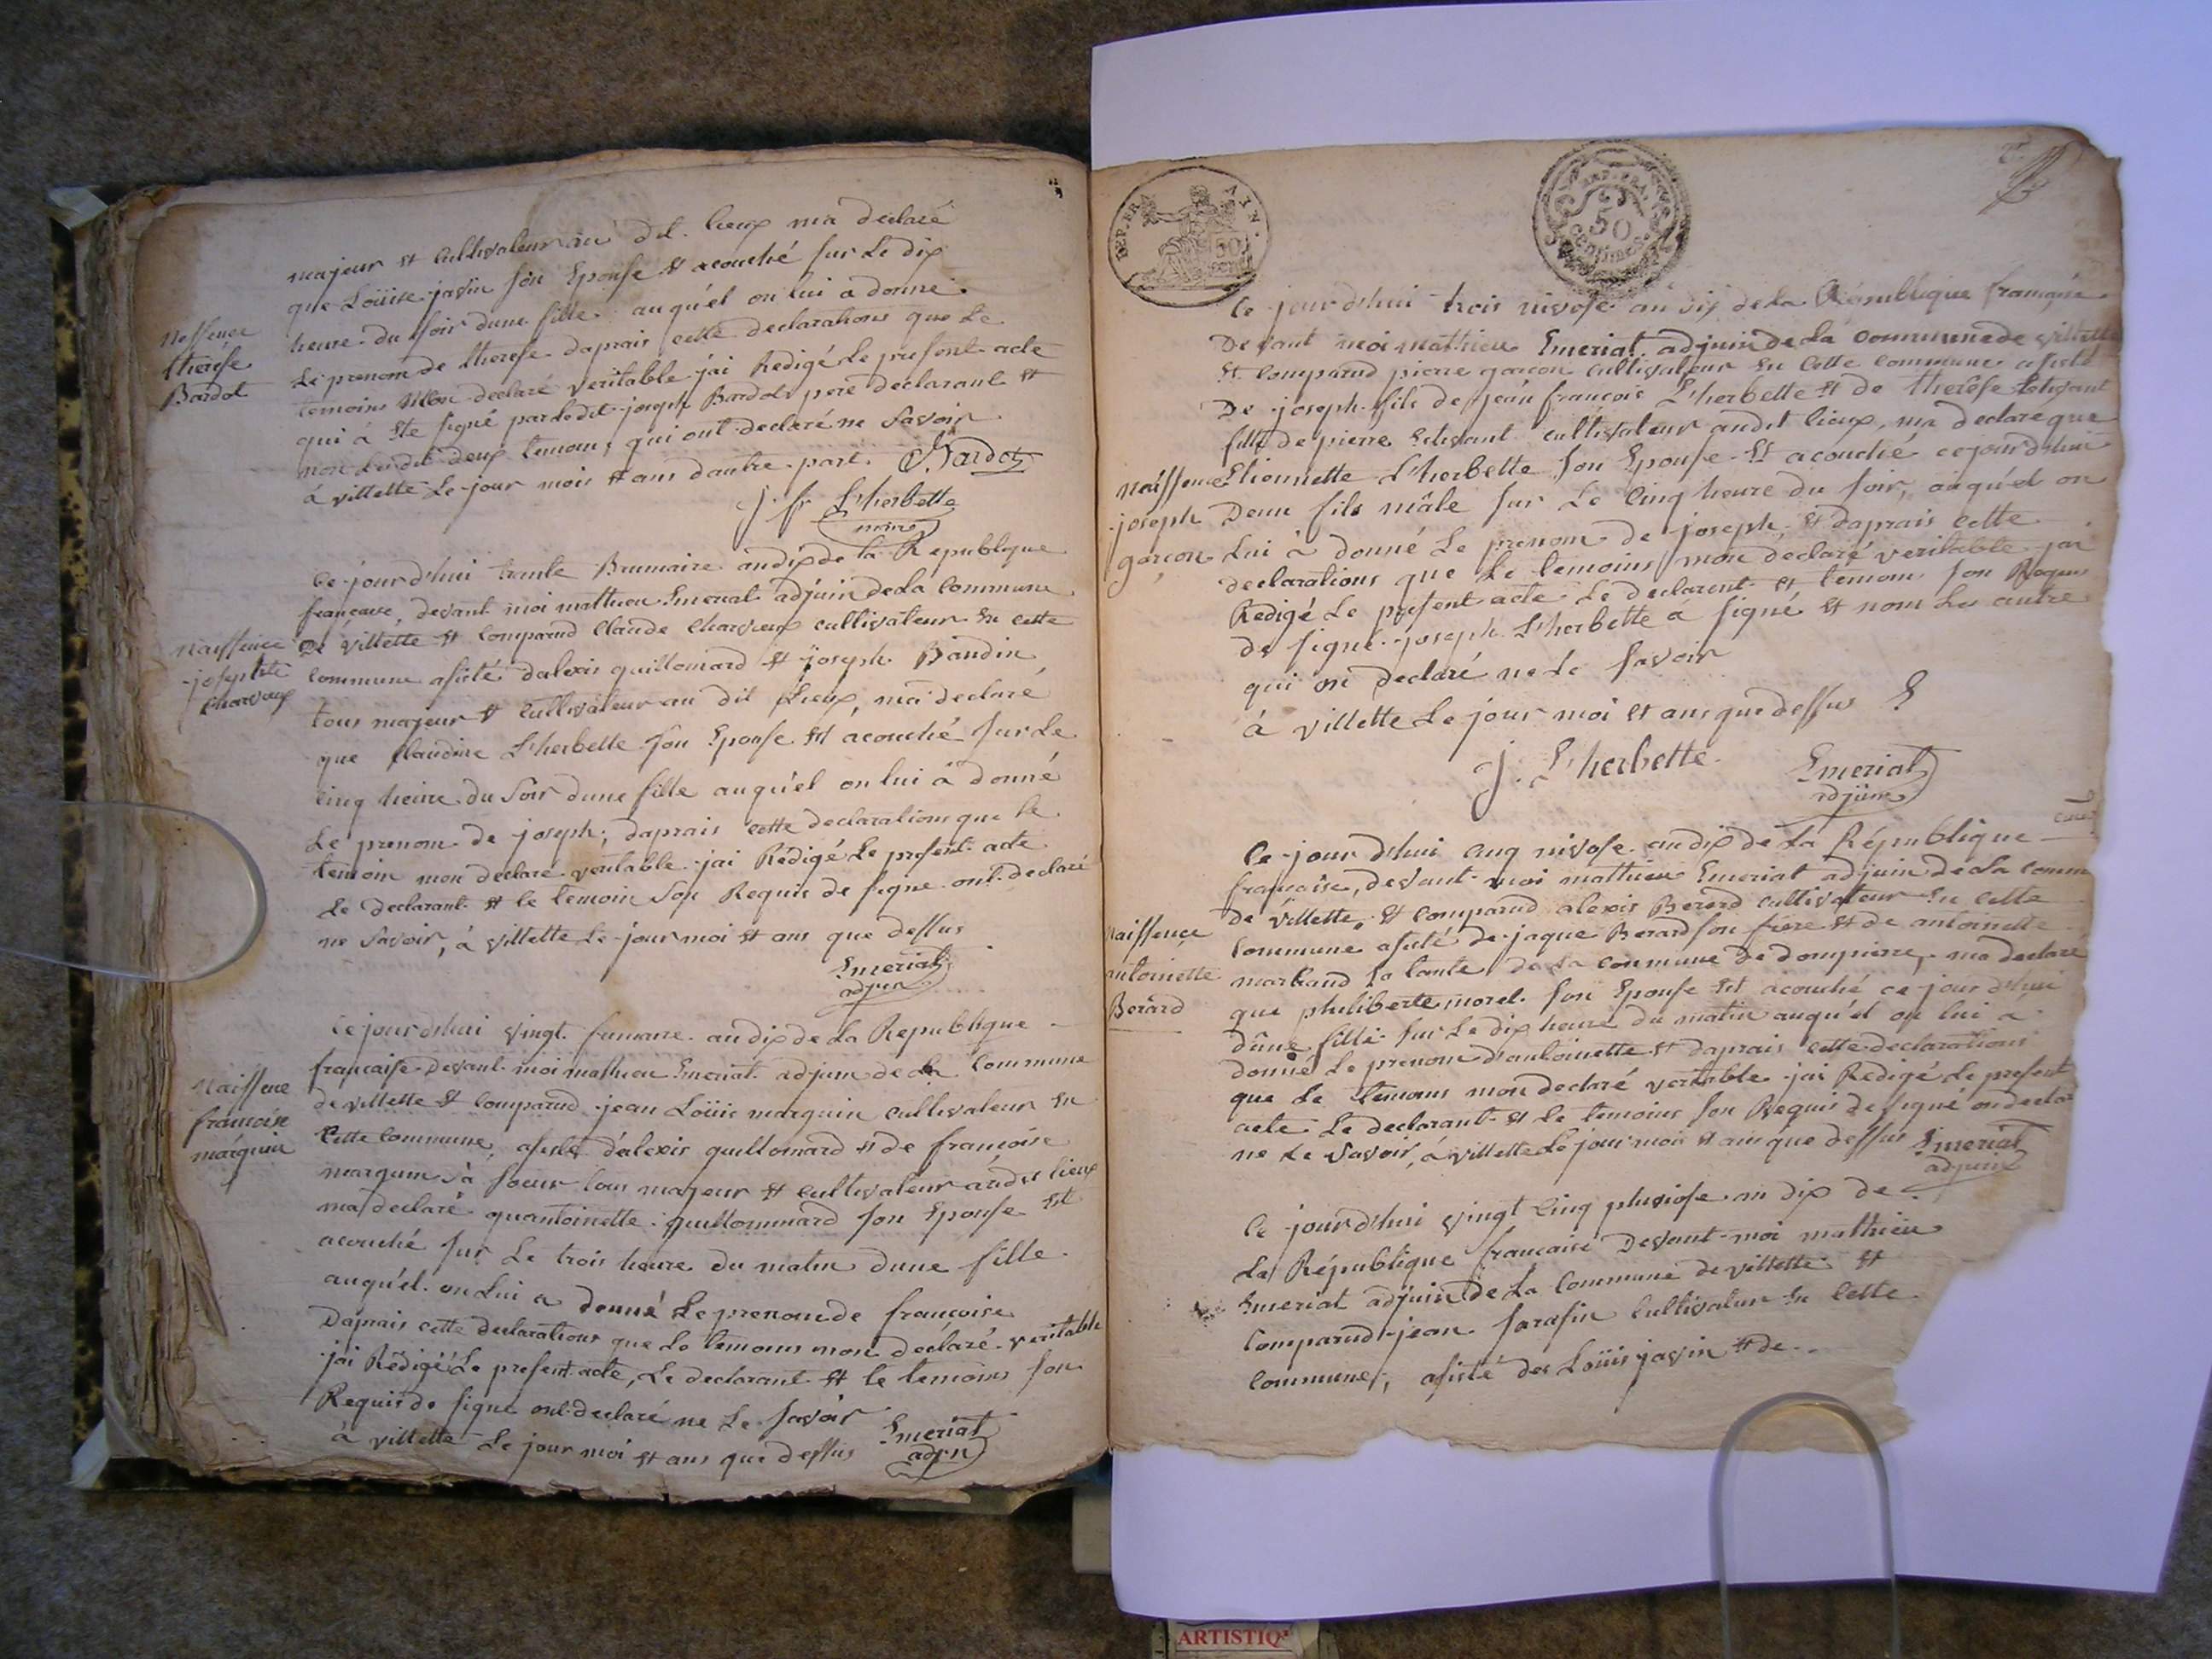 majeur et cultivateur au dit lieux ma declaré
que Loüise javin son Epouse et acouché sur Le dix
heure du soir dune fille auqu'el on lui a donné
Le prenom de therese daprais cette declarations que Le
temoins mon declaré veritable j'ai Redigé Le present acte
qui à Ete signé par ledit joseph Bardot pere declarant et
non lesdit deux temoins qui ont declaré ne Savoir
à villette Le jour mois et ans dautre part. J Bardot
j. fr L'herbette
maire
Nessence
therese
Bardot
Ce jourd'hui trante Brumaire an dix de la Republique
francaise, devant moi mathieu Emeriat adjuin de La Commune
De villette et comparud Claude Charveux cultivateur En cette
commune asisté dalexis guillomard et joseph Baudin
tous majeur et cultivateur au dit Lieux, ma declaré
que Claudine L'herbette son Epouse Et acouché sur Le
cinq heure du Soir dune fille auqu'el on lui à donné
Le prenom de joseph; daprais cette declarations que le
temoin mon declaré veritable jai Rédigé Le present acte
Le declarant et le temoin Son Requis de signe ont declaré
ne Savoir, à villette Le jour moi et ans que dessus
Emeriat
adjuin
Naissence
josephte
Charveux
Ce jourd'hui vingt frimaire an dix de La Republique
francaise devant moi mathieu Emeriat adjuin de La Commune
de villette et comparud jean Loüis marguin cultivateur En
Cette commune, asisté d'alexis guillomard et de francoise
marguin sà soeur tous majeur et cultivateur audit lieux
ma declaré quantoinette guillommard son Epouse Et
acouché sur Le trois heure du matin dune fille
auqu'el on Lui a donné Le prenom de francoise
Daprais cette declarations que Le temoins mon declaré veritable
jai Rédigé Le present acte, Le declarant et le temoins son
Requis de signe ont declaré ne Le savoir
à villette Le jour moi et ans que dessus Emeriat
adjn
Naissence
francoise
marguin
REP. FRA
50
centimes
Ce jourd'hui trois nivose an dix de La République française
Devant moi mathieu Emeriat adjuin de La commune de villette
Et comparud pierre garcon cultivateur En Cette commune asisté
De joseph fils de jean francois L'herbette et de therese
fille de pierre cultivateur audit lieux, ma declare que
Etiennette L'herbette son Epouse Et acouché ce jourd'hui
Deun fils mâle sur Le Cinq heure du soir, auqu'el on
Lui à donné Le prenom de joseph, et daprais cette
declarations que Le temoins mon declaré veritable jai
Redigé Le present acte Le declarent et temoins son Requis
de signé joseph L'herbette à signé et nom Les autre
qui on declaré ne Le Savoir
à villette Le jour moi et ans que dessus
J. L'herbette Emeriat
adjuin
Naissence
joseph
garçon
Ce jourd'hui cinq nivose an dix de La République
française, devant moi mathieu Emeriat adjuin de La comm
de villette, et comparud alexis Berard cultivateur En cette
Commune asisté de jaque Berard son frere et de antoinette
marband sa tante de La commune de dompierre, ma declare
que philiberte morel son Epouse Et acouché ce jourd'hui
dune fille sur Le dix heure du matin auqu'el on lui a
donné Le prenom d'antoinette et daprais cette declarations
que Le temoins mon declaré veritable jai Redigé Le present
acte Le declarant et Le temoins son Requis de signé on decla
ne Le Savoir, à villette Le jour mois et ans que dessus Emeriat
adjuin
Naissence
antoinette
Berard
Ce jourd'hui vingt Cinq pluviose an dix de
La République française Devant moi mathieu
Emeriat adjuin De La Commune de villette Et
Comparud jean sarasin Cultivateur En Cette
Commune, asisté des Loüis javin et de
ARTISTIQ